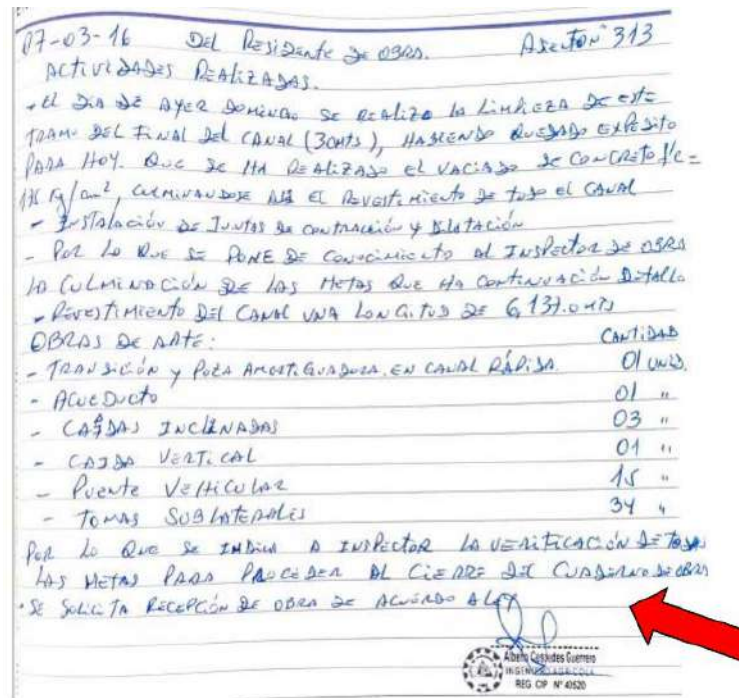 07-03-16 DEL RESIDENTE DE OBRA. ASIENTO Nº 313
ACTIVIDADES REALIZADAS.
- EL DIA DE AYER DOMINGO SE REALIZO LA LIMPIEZA DE ESTE
TRAMO DEL FINAL DEL CANAL (30MTS), HABIENDO QUEDADO EXPEDITO
PARA HOY. QUE SE HA REALIZADO EL VACIADO DE CONCRETO f'c =
175 Kg/cm², CULMINANDOSE EL REVESTIMIENTO DE TODO EL CANAL
- INSTALACIÓN DE JUNTAS DE CONTRACCIÓN Y DILATACIÓN
- POR LO QUE SE PONE DE CONOCIMIENTO AL INSPECTOR DE OBRA
LA CULMINACIÓN DE LAS METAS QUE HA CONTINUACIÓN DETALLO
- REVESTIMIENTO DEL CANAL UNA LONGITUD DE 6,137.0 MTS
OBRAS DE ARTE: CANTIDAD
- TRANSICIÓN Y POZA AMORTIGUADORA, EN CANAL RÁPIDA. 01 UNID.
- ACUEDUCTO 01 "
- CAÍDAS INCLINADAS 03 "
- CAIDA VERTICAL 01 "
- PUENTE VEHICULAR 15 "
- TOMAS SUBLATERALES 34 "
POR LO QUE SE INDICA A INSPECTOR LA VERIFICACIÓN DE TODAS
LAS METAS PARA PROCEDER AL CIERRE DEL CUADERNO DE OBRA
- SE SOLICITA RECEPCIÓN DE OBRA DE ACUERDO A LEY
Alberto Cespedes Guerrero
INGENIERO AGRICOLA
REG CIP Nº 40520